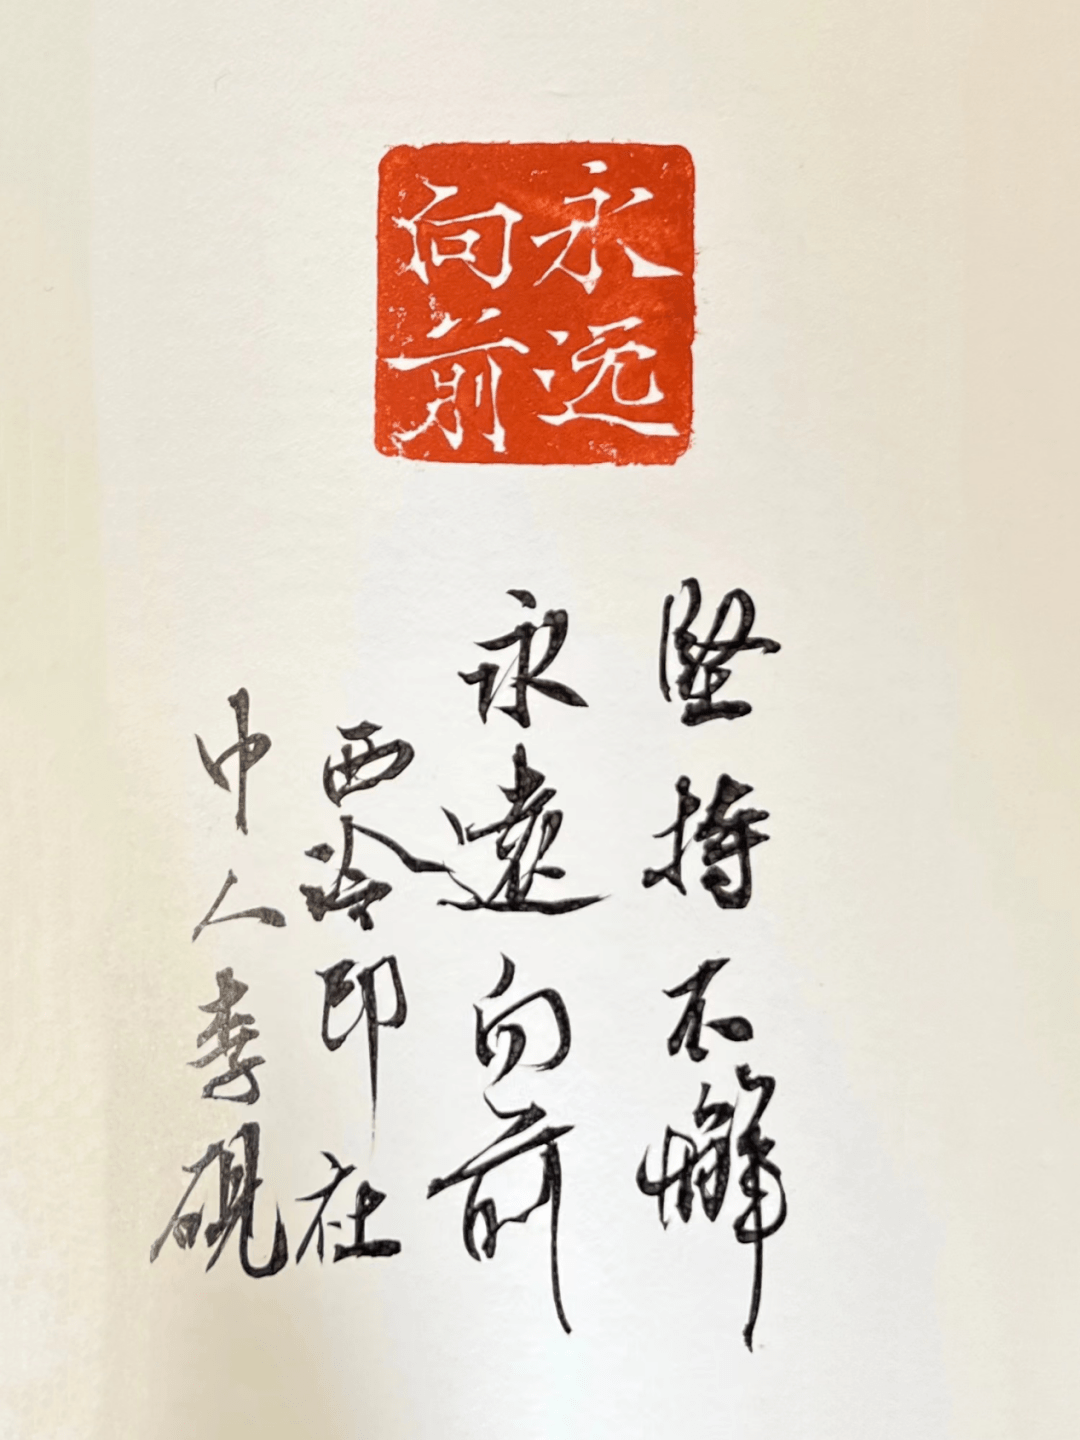 永远
向前
堅持不懈
永遠向前
西泠印社
中人李砚